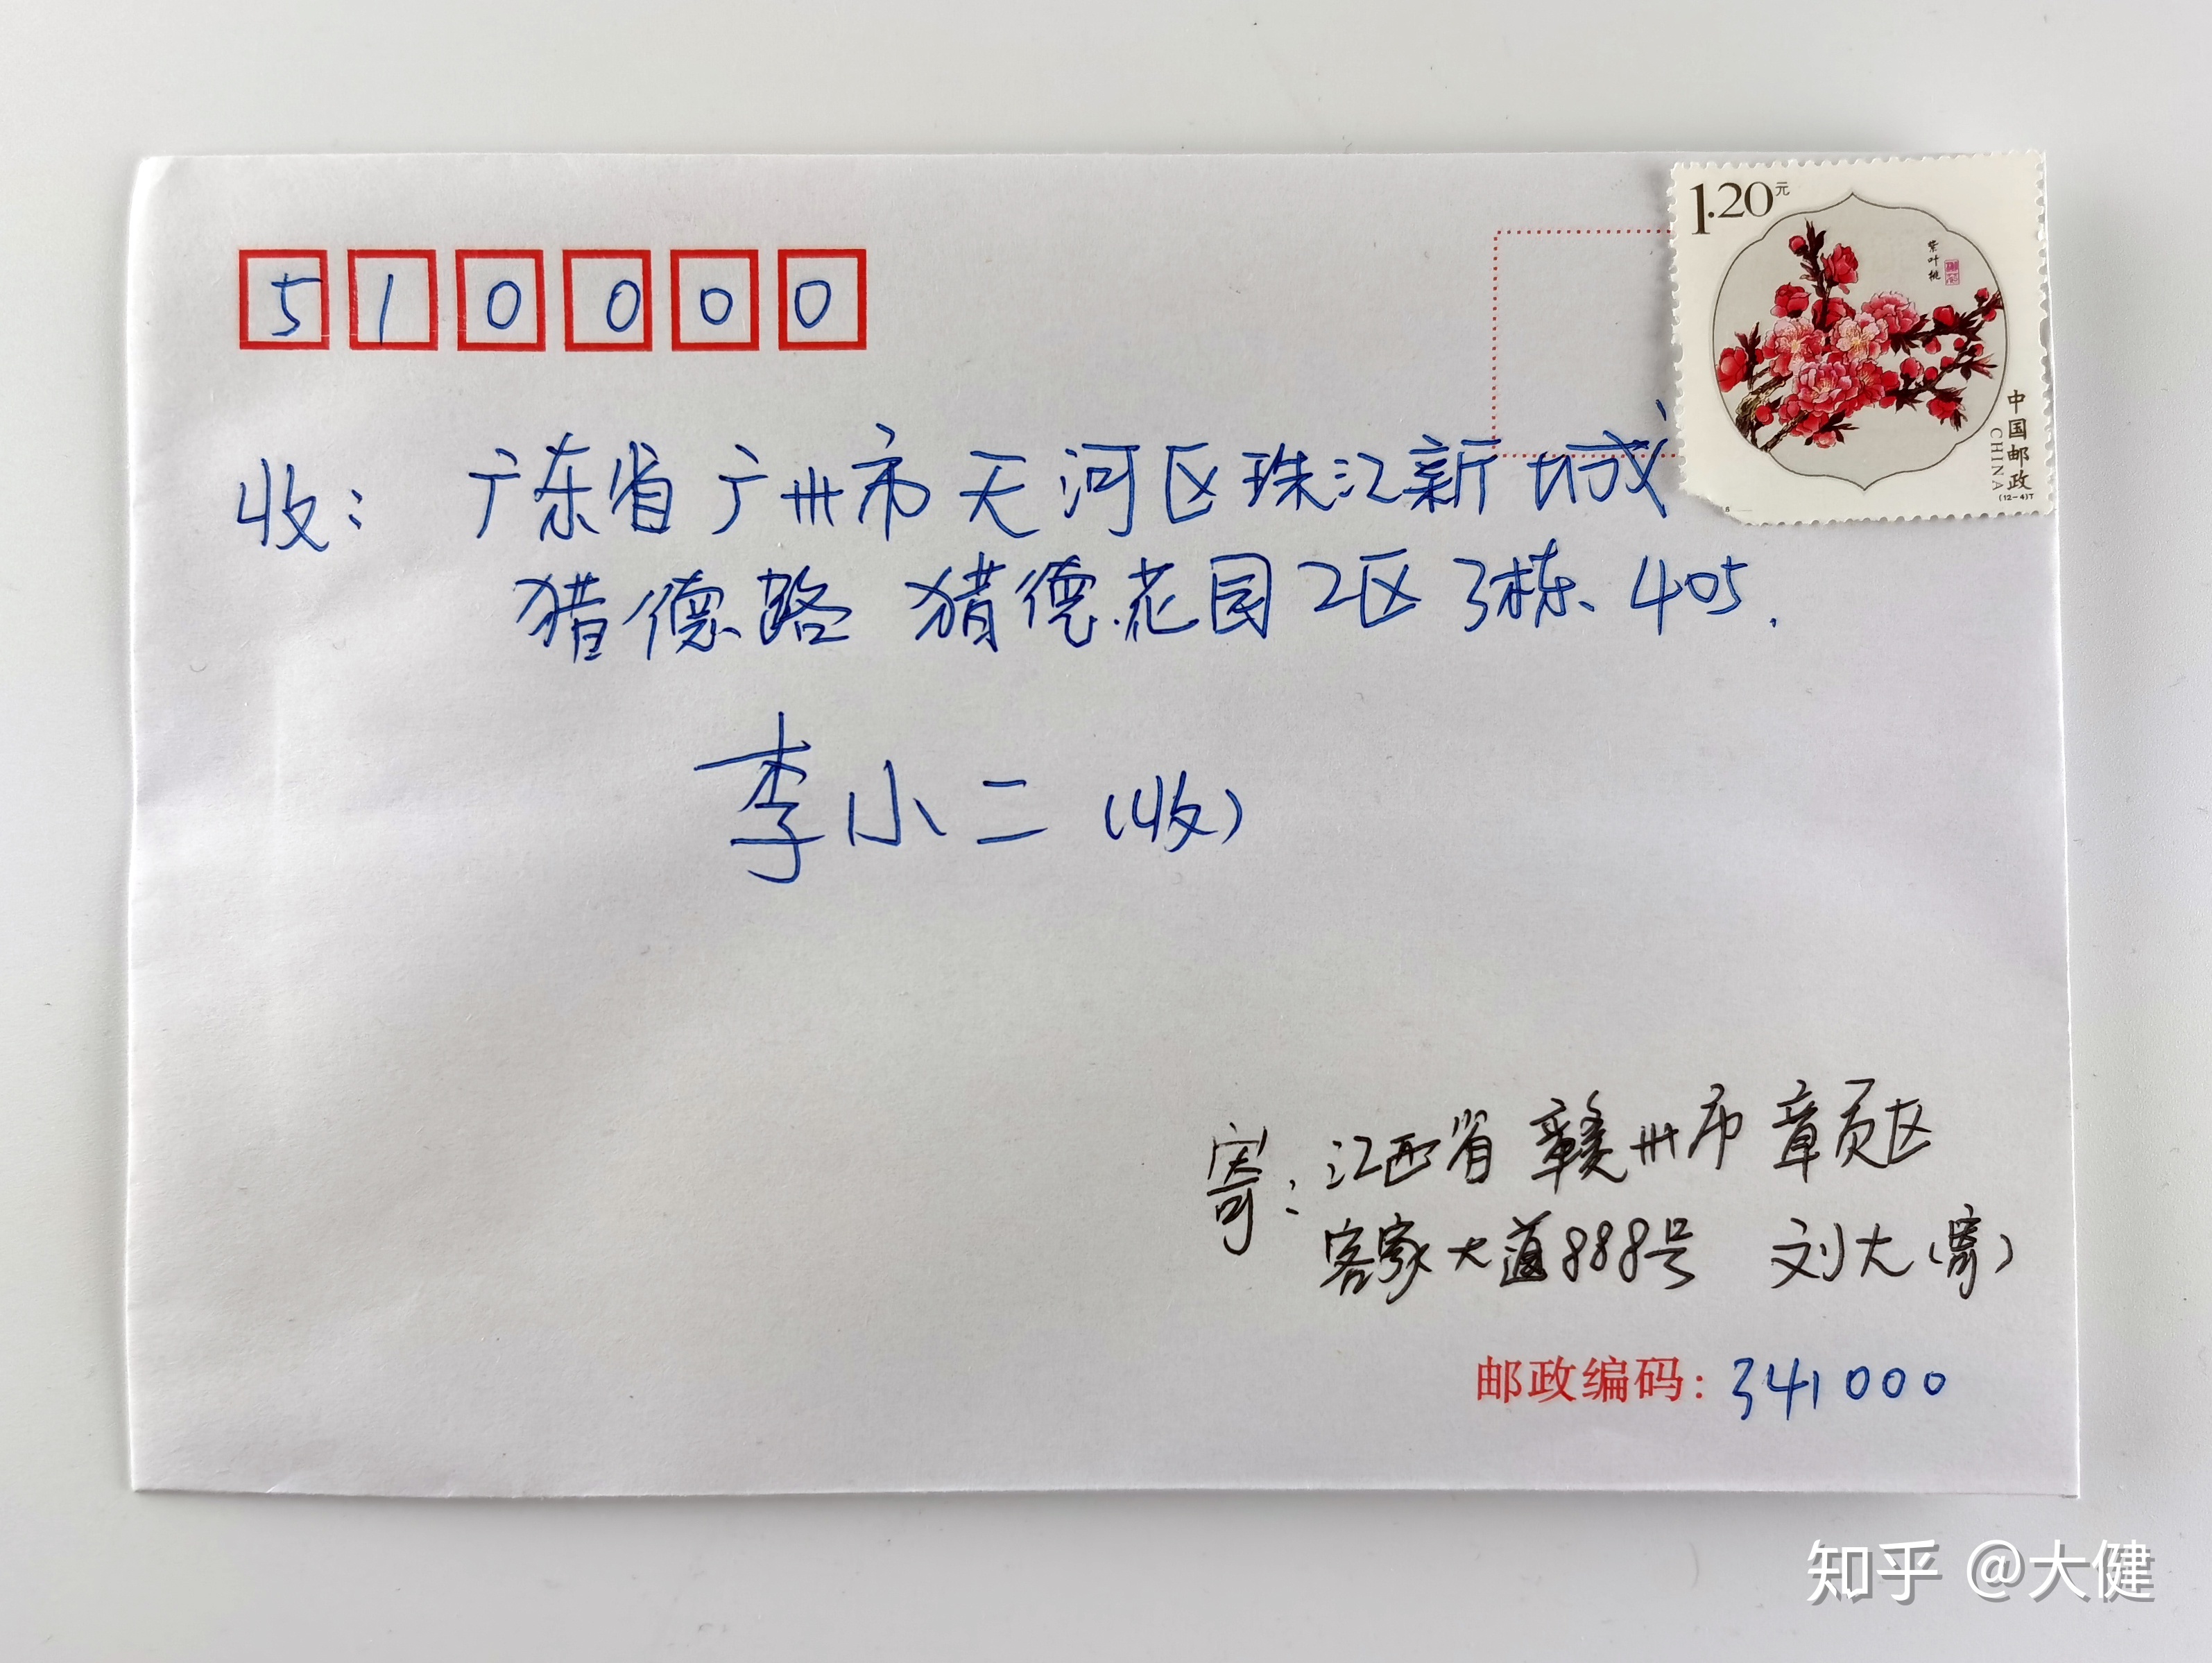 1.20元
紫叶桃
中国邮政
CHINA
(12-4)T
510000
收：广东省广州市天河区珠江新城
猎德路 猎德花园2区3栋405.
李小二（收）
寄：江西省赣州市章贡区
客家大道888号 刘大（寄）
邮政编码：341000
知乎 @大健